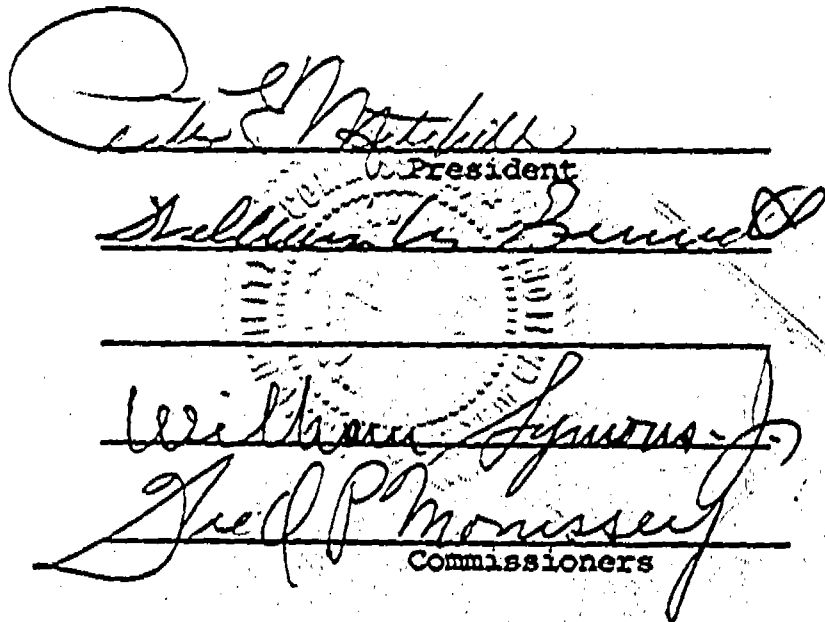 E Mitchell
President
William M. Bennett
William Symons. Jr.
Fred P Morrissey
Commissioners